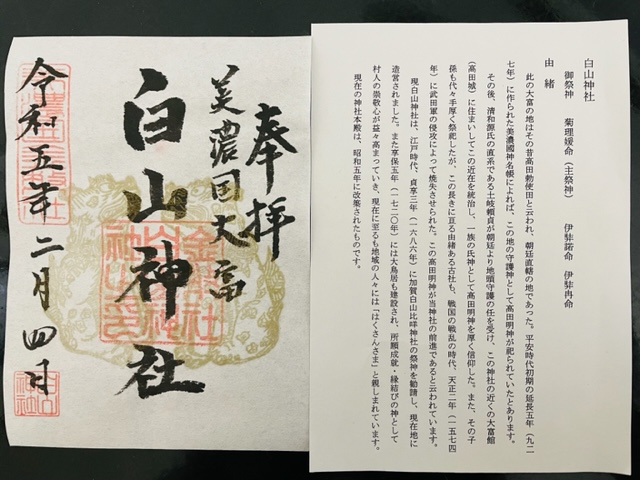 奉拝
美濃国大富
白山神社
令和五年二月四日
白山神社
御祭神　菊理媛命（主祭神）　伊弉諾命　伊弉冉命
由緒
此の大富の地はその昔高田勅使田と云われ、朝廷直轄の地であった。平安時代初期の延長五年（九二
七年）に作られた美濃國神名帳によれば、この地の守護神として高田明神が祀られていたとあります。
その後、清和源氏の直系である土岐頼貞が朝廷より地頭守護の任を受け、この神社の近くの大富館
（高田城）に住まいしてこの近在を統治し、一族の氏神として高田明神を厚く信仰した。また、その子
孫も代々手厚く祭祀したが、この長きに亘る由緒ある古社も、戦国の戦乱の時代、天正二年（一五七四
年）に武田軍の侵攻によって焼失させられた。この高田明神が当神社の前進であると云われています。
現白山神社は、江戸時代、貞享三年（一六八六年）に加賀白山比咩神社の祭神を勧請し、現在地に
造営されました。また享保五年（一七二〇年）には大鳥居も建設され、所願成就・縁結びの神として
村人の崇敬心が益々高まっていき、現在に至るも地域の人々には「はくさんさま」と親しまれています。
現在の神社本殿は、昭和五年に改築されたものです。